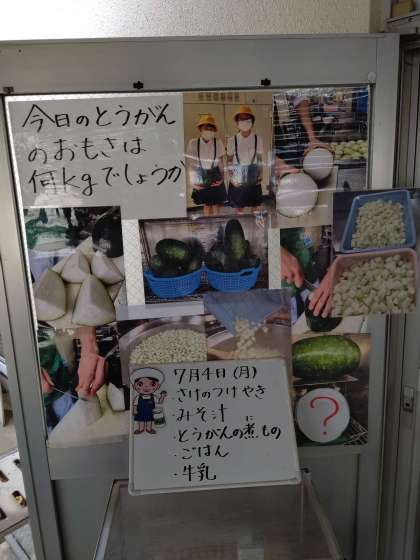 今日のとうがん
のおもさは
何kgでしょうか
7月4日(月)
・さけのつけやき
・みそ汁
・とうがんの煮もの
に
・ごはん
・牛乳
?